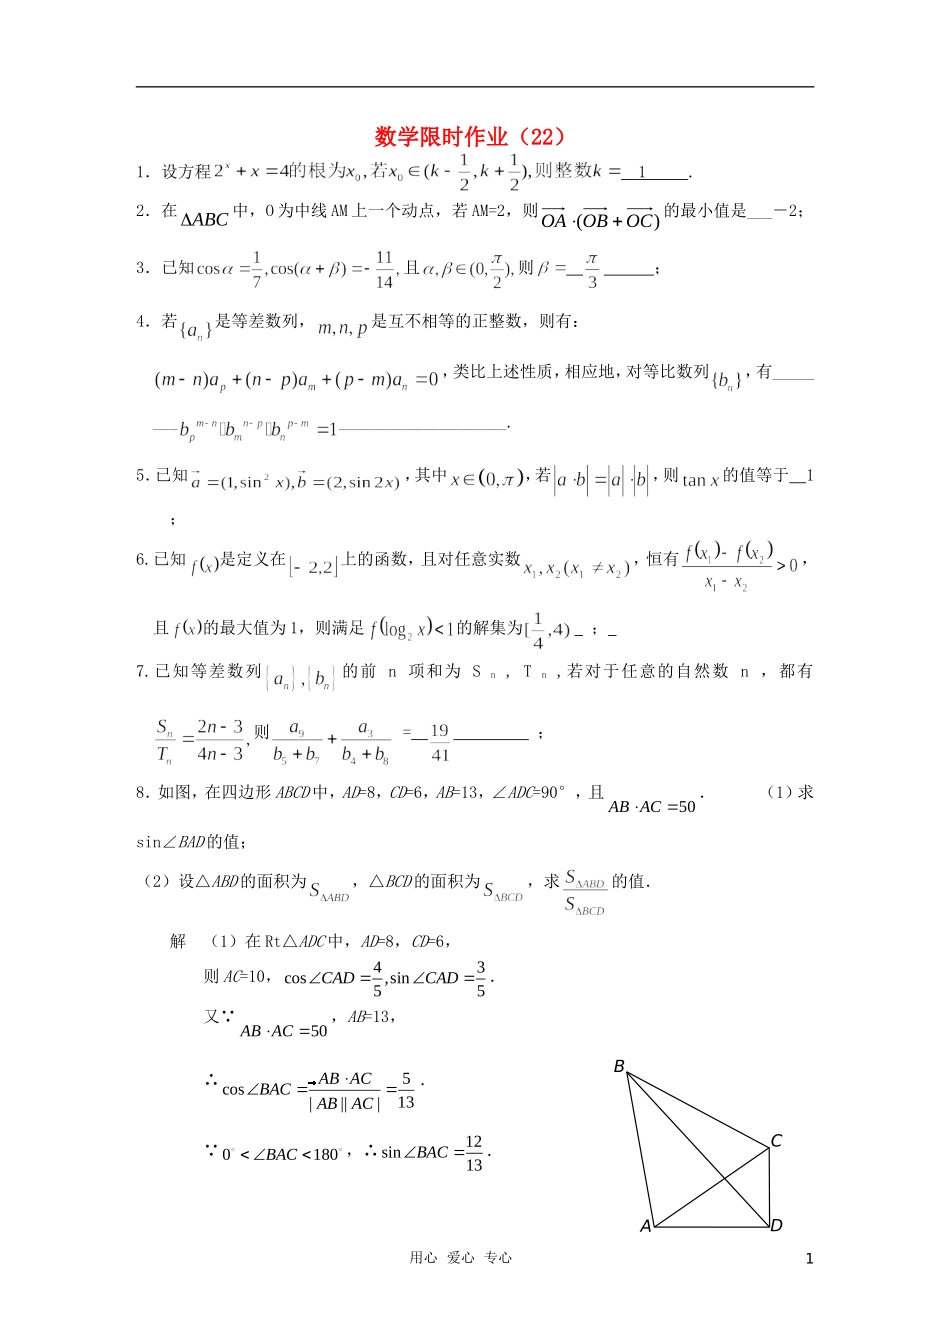 数学限时作业（22）
1．设方程2^x + x = 4的根为x₀,若x₀∈(k - 1/2, k + 1/2),则整数k = 1 .
2．在ΔABC中，O为中线AM上一个动点，若AM=2，则OA·(OB+OC)的最小值是___－2；
3．已知cosα = 1/7, cos(α + β) = 11/14, 且α, β∈(0, π/2), 则β = π/3 ；
4．若{aₙ}是等差数列，m, n, p是互不相等的正整数，则有：
(m - n)aₚ + (n - p)aₘ + (p - m)aₙ = 0，类比上述性质，相应地，对等比数列{bₙ}，有_____
___bₚ^(m-n)·bₘ^(n-p)·bₙ^(p-m) = 1____________________．
5．已知a = (1, sin² x), b = (2, sin 2x)，其中x∈(0, π)，若|a·b| = |a|·|b|，则tan x的值等于__1
；
6．已知 f(x)是定义在[- 2,2]上的函数，且对任意实数x₁, x₂(x₁ ≠ x₂)，恒有(f(x₁) - f(x₂))/(x₁ - x₂) > 0，
且 f(x)的最大值为 1，则满足f(log₂ x) < 1的解集为[1/4, 4)_ ；_
7．已知等差数列{aₙ}, {bₙ}的前 n 项和为 S ₙ , T ₙ ,若对于任意的自然数 n ，都有
Sₙ/Tₙ = (2n - 3)/(4n - 3), 则 a₉/(b₅ + b₇) + a₃/(b₄ + b₈) =__19/41__________ ；
8．如图，在四边形 ABCD 中，AD=8，CD=6，AB=13，∠ADC=90°，且AB·AC = 50． （1）求
sin∠BAD的值；
（2）设△ABD的面积为S_ΔABD，△BCD的面积为S_ΔBCD，求S_ΔABD/S_ΔBCD的值．
解 （1）在 Rt△ADC中，AD=8，CD=6，
则 AC=10，cos∠CAD = 4/5, sin∠CAD = 3/5．
又∵AB·AC = 50，AB=13，
∴cos∠BAC = AB·AC/(|AB||AC|) = 5/13．
∵0° < ∠BAC < 180°，∴sin∠BAC = 12/13．
B
C
A
D
用心 爱心 专心
1